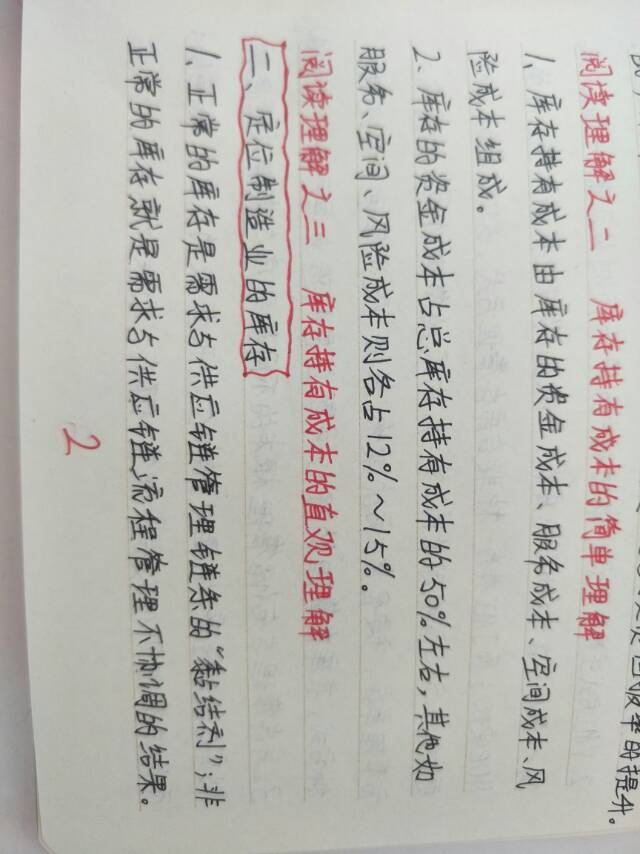 的提升。
阅读理解之二 库存持有成本的简单理解
1、库存持有成本由库存的资金成本、服务成本、空间成本、风
险成本组成。
2、库存的资金成本占总库存持有成本的50%左右，其他如
服务、空间、风险成本则各占12%～15%。
阅读理解之三 库存持有成本的直观理解
二、定位制造业的库存
1、正常的库存是需求与供应链管理链条的“黏结剂”；非
正常的库存就是需求与供应链流程管理不协调的结果。
2